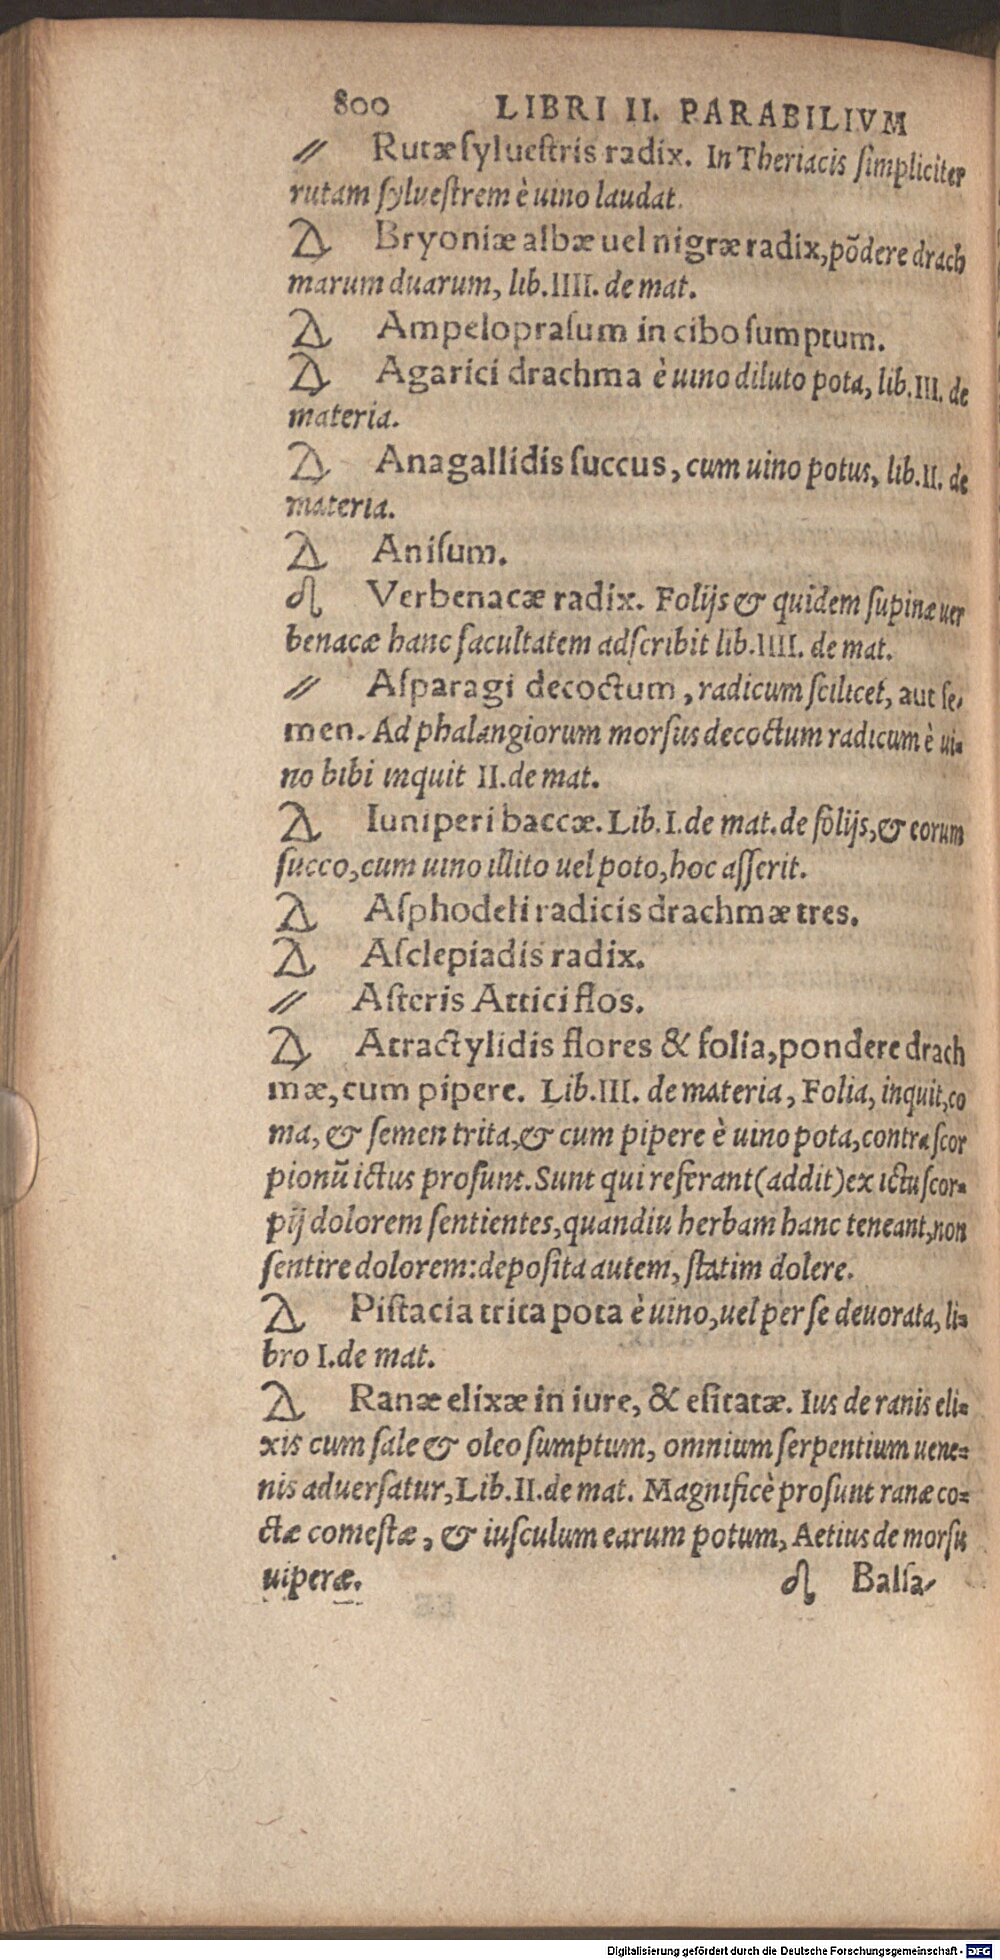 800 LIBRI II. PARABILIVM
⫽ Rutæ ſylueſtris radix. In Theriacis ſimpliciter
rutam ſylueſtrem è uino laudat.
Δ Bryoniæ albæ uel nigræ radix, põdere drach
marum duarum, lib.IIII. de mat.
Δ Ampelopraſum in cibo ſumptum.
Δ Agarici drachma è uino diluto pota, lib.III. de
materia.
Δ Anagallidis ſuccus, cum uino potus, lib.II. de
materia.
Δ Aniſum.
♌ Verbenacæ radix. Folijs & quidem ſupinæ uer
benacæ hanc facultatem adſcribit lib.IIII. de mat.
⫽ Aſparagi decoctum, radicum ſcilicet, aut ſe-
men. Ad phalangiorum morſus decoctum radicum è ui-
no bibi inquit II.de mat.
Δ Iuniperi baccæ. Lib.I.de mat.de folijs,& eorum
ſucco,cum uino illito uel poto,hoc aſſerit.
Δ Aſphodeli radicis drachmæ tres.
Δ Aſclepiadis radix.
⫽ Aſteris Attici flos.
Δ Atractylidis flores & folia,pondere drach
mæ,cum pipere. Lib.III. de materia, Folia, inquit,co
ma, & ſemen trita,& cum pipere è uino pota,contra ſcor
pionũ ictus proſunt.Sunt qui referant(addit)ex ictu ſcor-
pij dolorem ſentientes,quandiu herbam hanc teneant,non
ſentire dolorem:depoſita autem, ſtatim dolere.
Δ Piſtacia trita pota è uino,uel per ſe deuorata, li-
bro I.de mat.
Δ Ranæ elixæ in iure, & eſitatæ. Ius de ranis eli-
xis cum ſale & oleo ſumptum, omnium ſerpentium uene-
nis aduerſatur,Lib.II.de mat. Magnificè proſunt ranæ co-
ctæ comeſtæ, & iuſculum earum potum, Aetius de morſu
uiperæ. ♌ Balſa-
Digitalisierung gefördert durch die Deutsche Forschungsgemeinschaft - DFG